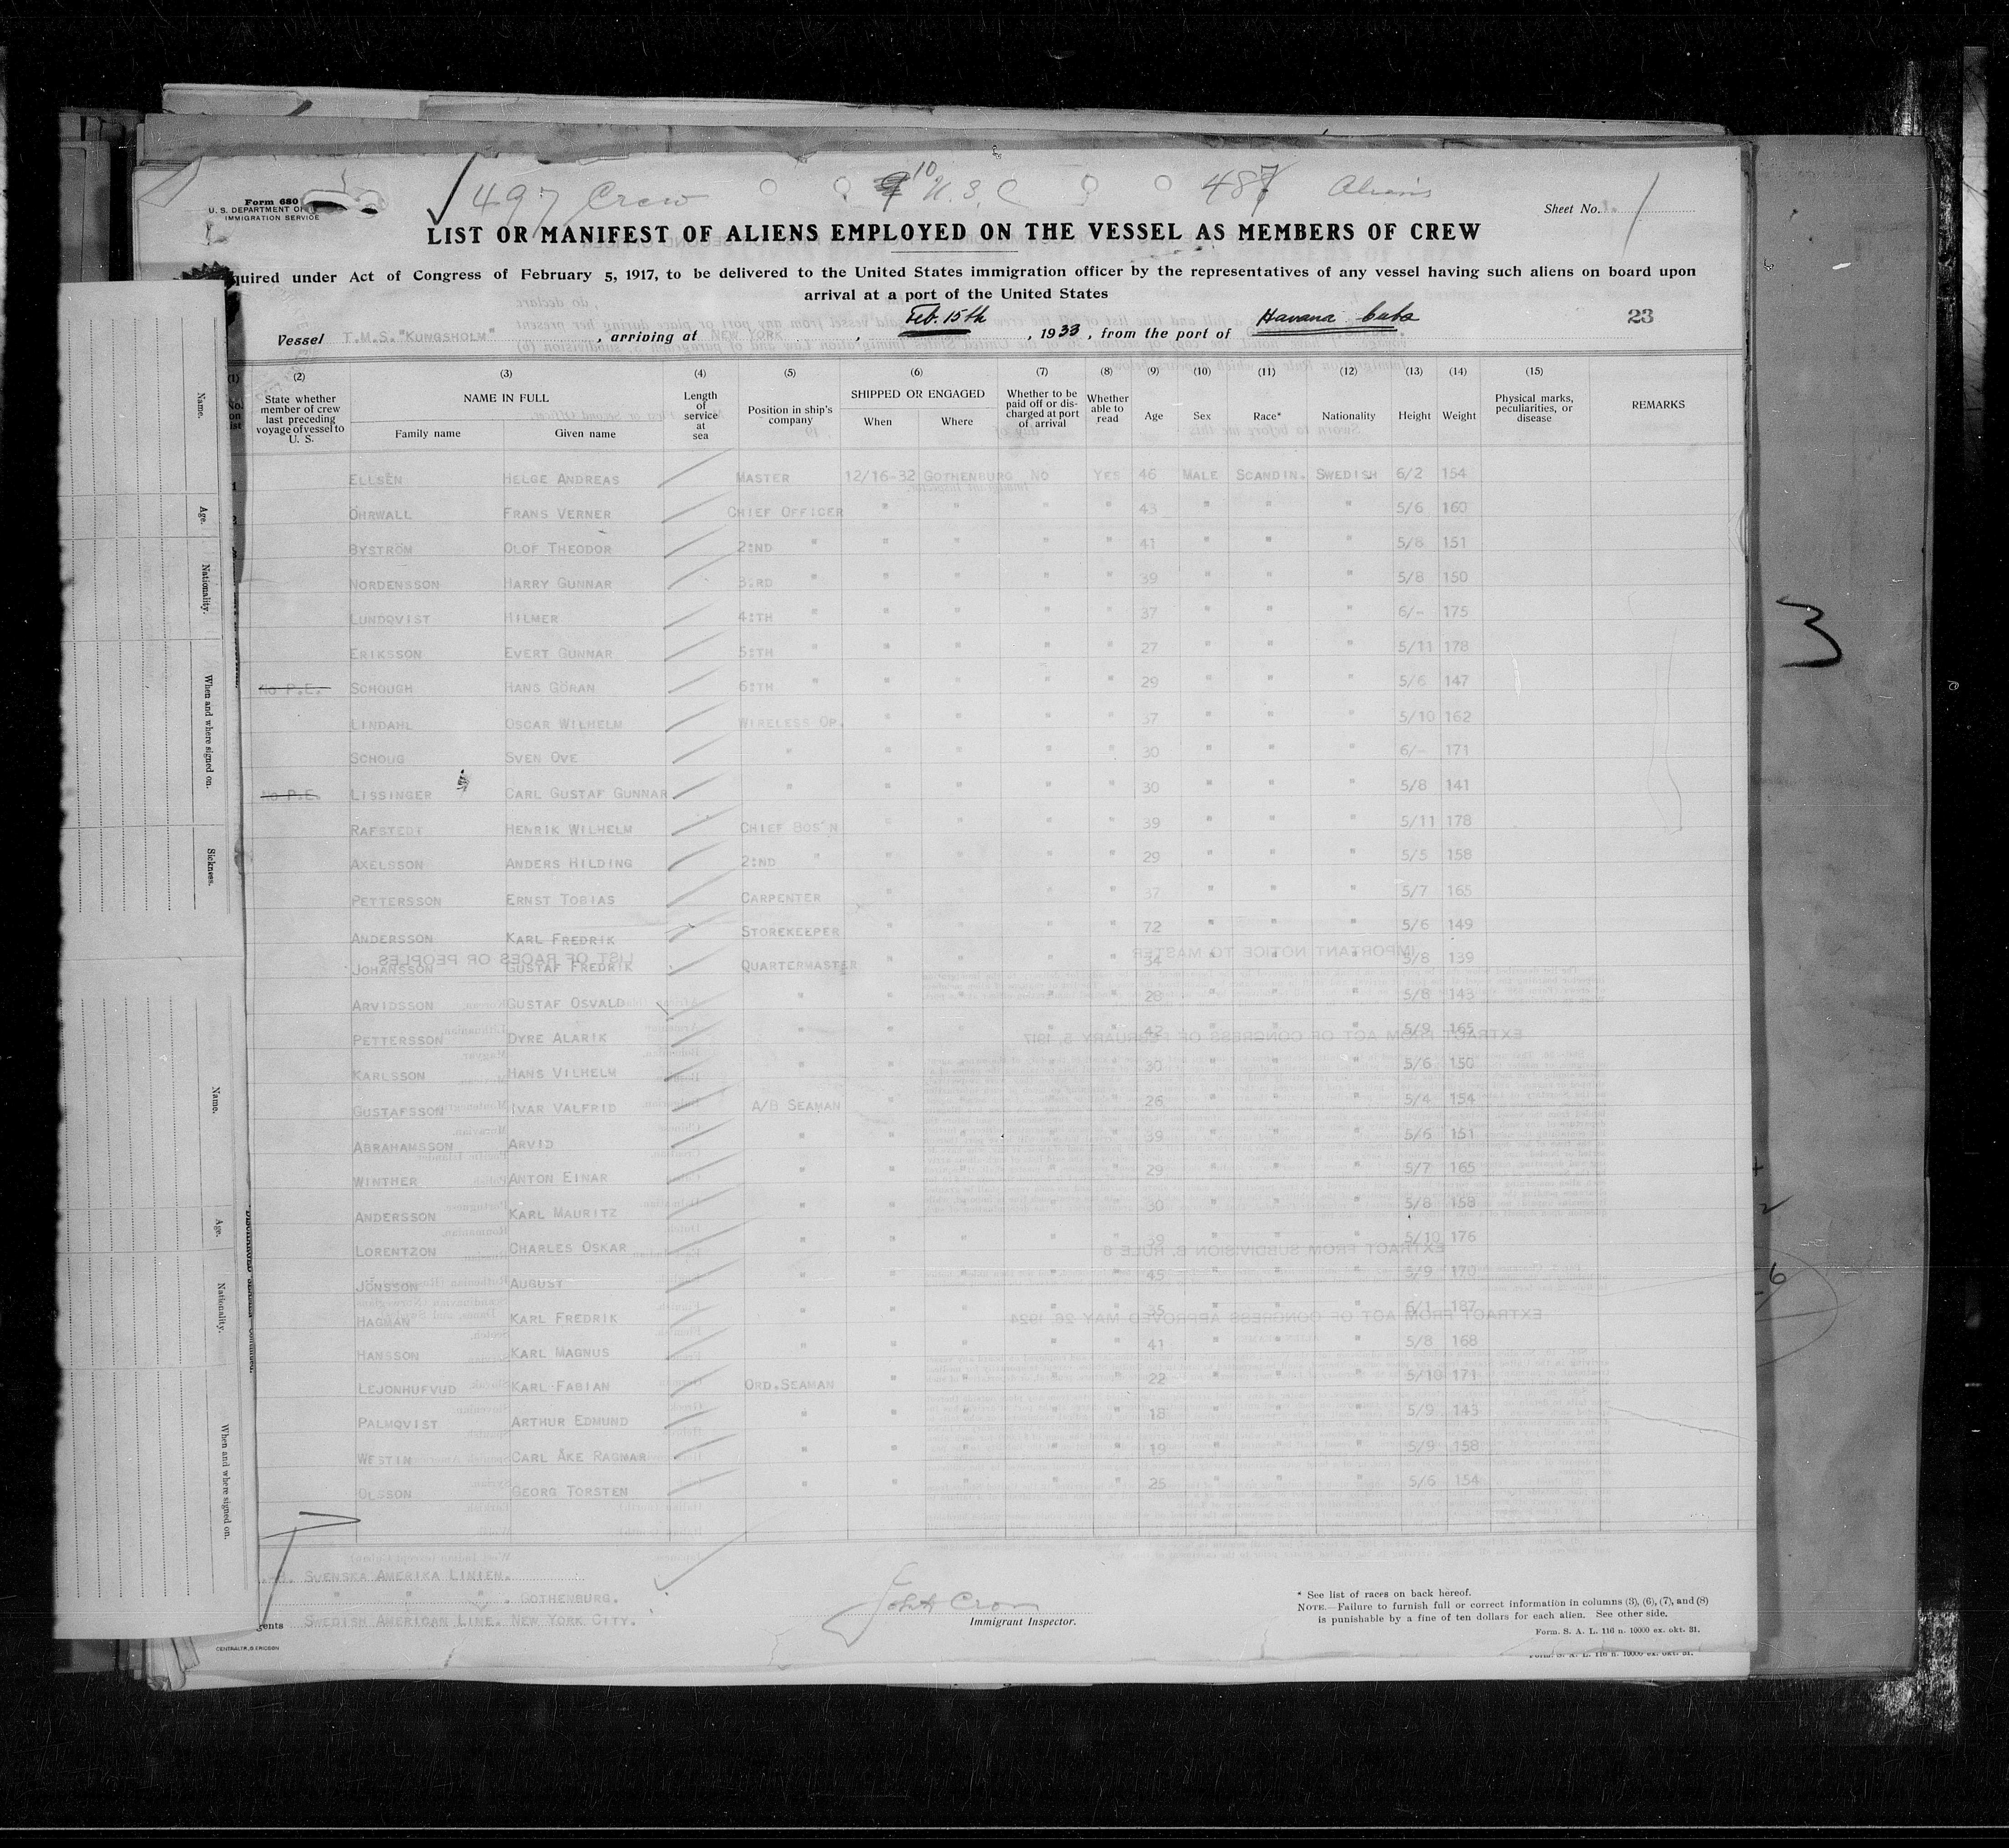 497 Crew 10 U.S.C 487 Aliens
Form 680
U. S. DEPARTMENT OF
IMMIGRATION SERVICE
Sheet No. 1
LIST OR MANIFEST OF ALIENS EMPLOYED ON THE VESSEL AS MEMBERS OF CREW
quired under Act of Congress of February 5, 1917, to be delivered to the United States immigration officer by the representatives of any vessel having such aliens on board upon
arrival at a port of the United States
Vessel T.M.S. "KUNGSHOLM", arriving at NEW YORK, Feb. 15th, 1933, from the port of Havana Cuba 23
(1) (2) (3) (4) (5) (6) (7) (8) (9) (10) (11) (12) (13) (14) (15)
No. on list
State whether member of crew last preceding voyage of vessel to U. S.
NAME IN FULL
Family name Given name
Length of service at sea
Position in ship's company
SHIPPED OR ENGAGED
When Where
Whether to be paid off or discharged at port of arrival
Whether able to read
Age Sex Race* Nationality Height Weight
Physical marks, peculiarities, or disease
REMARKS
1 ELLSÉN HELGE ANDREAS MASTER 12/16-32 GOTHENBURG NO YES 46 MALE SCANDIN. SWEDISH 6/2 154
ÖHRWALL FRANS VERNER CHIEF OFFICER " " " " 43 " " " 5/6 160
BYSTRÖM OLOF THEODOR 2:ND " " " " " 41 " " " 5/8 151
NORDENSSON HARRY GUNNAR 3:RD " " " " " 39 " " " 5/8 150
LUNDQVIST HILMER 4:TH " " " " " 37 " " " 6/- 175
ERIKSSON EVERT GUNNAR 5:TH " " " " " 27 " " " 5/11 178
No P.E. SCHOUGH HANS GÖRAN 6:TH " " " " " 29 " " " 5/6 147
LINDAHL OSCAR WILHELM WIRELESS OP. " " " " 37 " " " 5/10 162
SCHOUG SVEN OVE " " " " " 30 " " " 6/- 171
No P.E. LISSINGER CARL GUSTAF GUNNAR " " " " " 30 " " " 5/8 141
RAFSTEDT HENRIK WILHELM CHIEF BOS'N " " " " 39 " " " 5/11 178
AXELSSON ANDERS HILDING 2:ND " " " " " 29 " " " 5/5 158
PETTERSSON ERNST TOBIAS CARPENTER " " " " 37 " " " 5/7 165
ANDERSSON KARL FREDRIK STOREKEEPER " " " " 72 " " " 5/6 149
JOHANSSON GUSTAF FREDRIK QUARTERMASTER " " " " 34 " " " 5/8 139
ARVIDSSON GUSTAF OSVALD " " " " " 28 " " " 5/8 143
PETTERSSON DYRE ALARIK " " " " " 42 " " " 5/9 165
KARLSSON HANS VILHELM " " " " " 30 " " " 5/6 150
GUSTAFSSON IVAR VALFRID A/B SEAMAN " " " " 26 " " " 5/4 154
ABRAHAMSSON ARVID " " " " " 39 " " " 5/6 151
WINTHER ANTON EINAR " " " " " 29 " " " 5/7 165
ANDERSSON KARL MAURITZ " " " " " 30 " " " 5/8 158
LORENTZON CHARLES OSKAR " " " " " 39 " " " 5/10 176
JÖNSSON AUGUST " " " " " 45 " " " 5/9 170
HAGMAN KARL FREDRIK " " " " " 35 " " " 6/1 187
HANSSON KARL MAGNUS " " " " " 41 " " " 5/8 168
LEJONHUFVUD KARL FABIAN ORD.SEAMAN " " " " 22 " " " 5/10 171
PALMQVIST ARTHUR EDMUND " " " " " 18 " " " 5/9 143
WESTIN CARL ÅKE RAGNAR " " " " " 19 " " " 5/9 158
OLSSON GEORG TORSTEN " " " " " 25 " " " 5/6 154
SVENSKA AMERIKA LINIEN.
" " " . GOTHENBURG.
gents SWEDISH AMERICAN LINE. NEW YORK CITY.
CENTRALTR., G. ERICSON
Immigrant Inspector.
* See list of races on back hereof.
NOTE.—Failure to furnish full or correct information in columns (3), (6), (7), and (8)
is punishable by a fine of ten dollars for each alien. See other side.
Form. S. A. L. 116 n. 10000 ex. okt. 31.
Form. S. A. L. 116 n. 10000 ex. okt. 31.
Name.
Age.
Nationality.
When and where signed on.
Sickness.
Name.
Age.
Nationality.
When and where signed on.
3
6